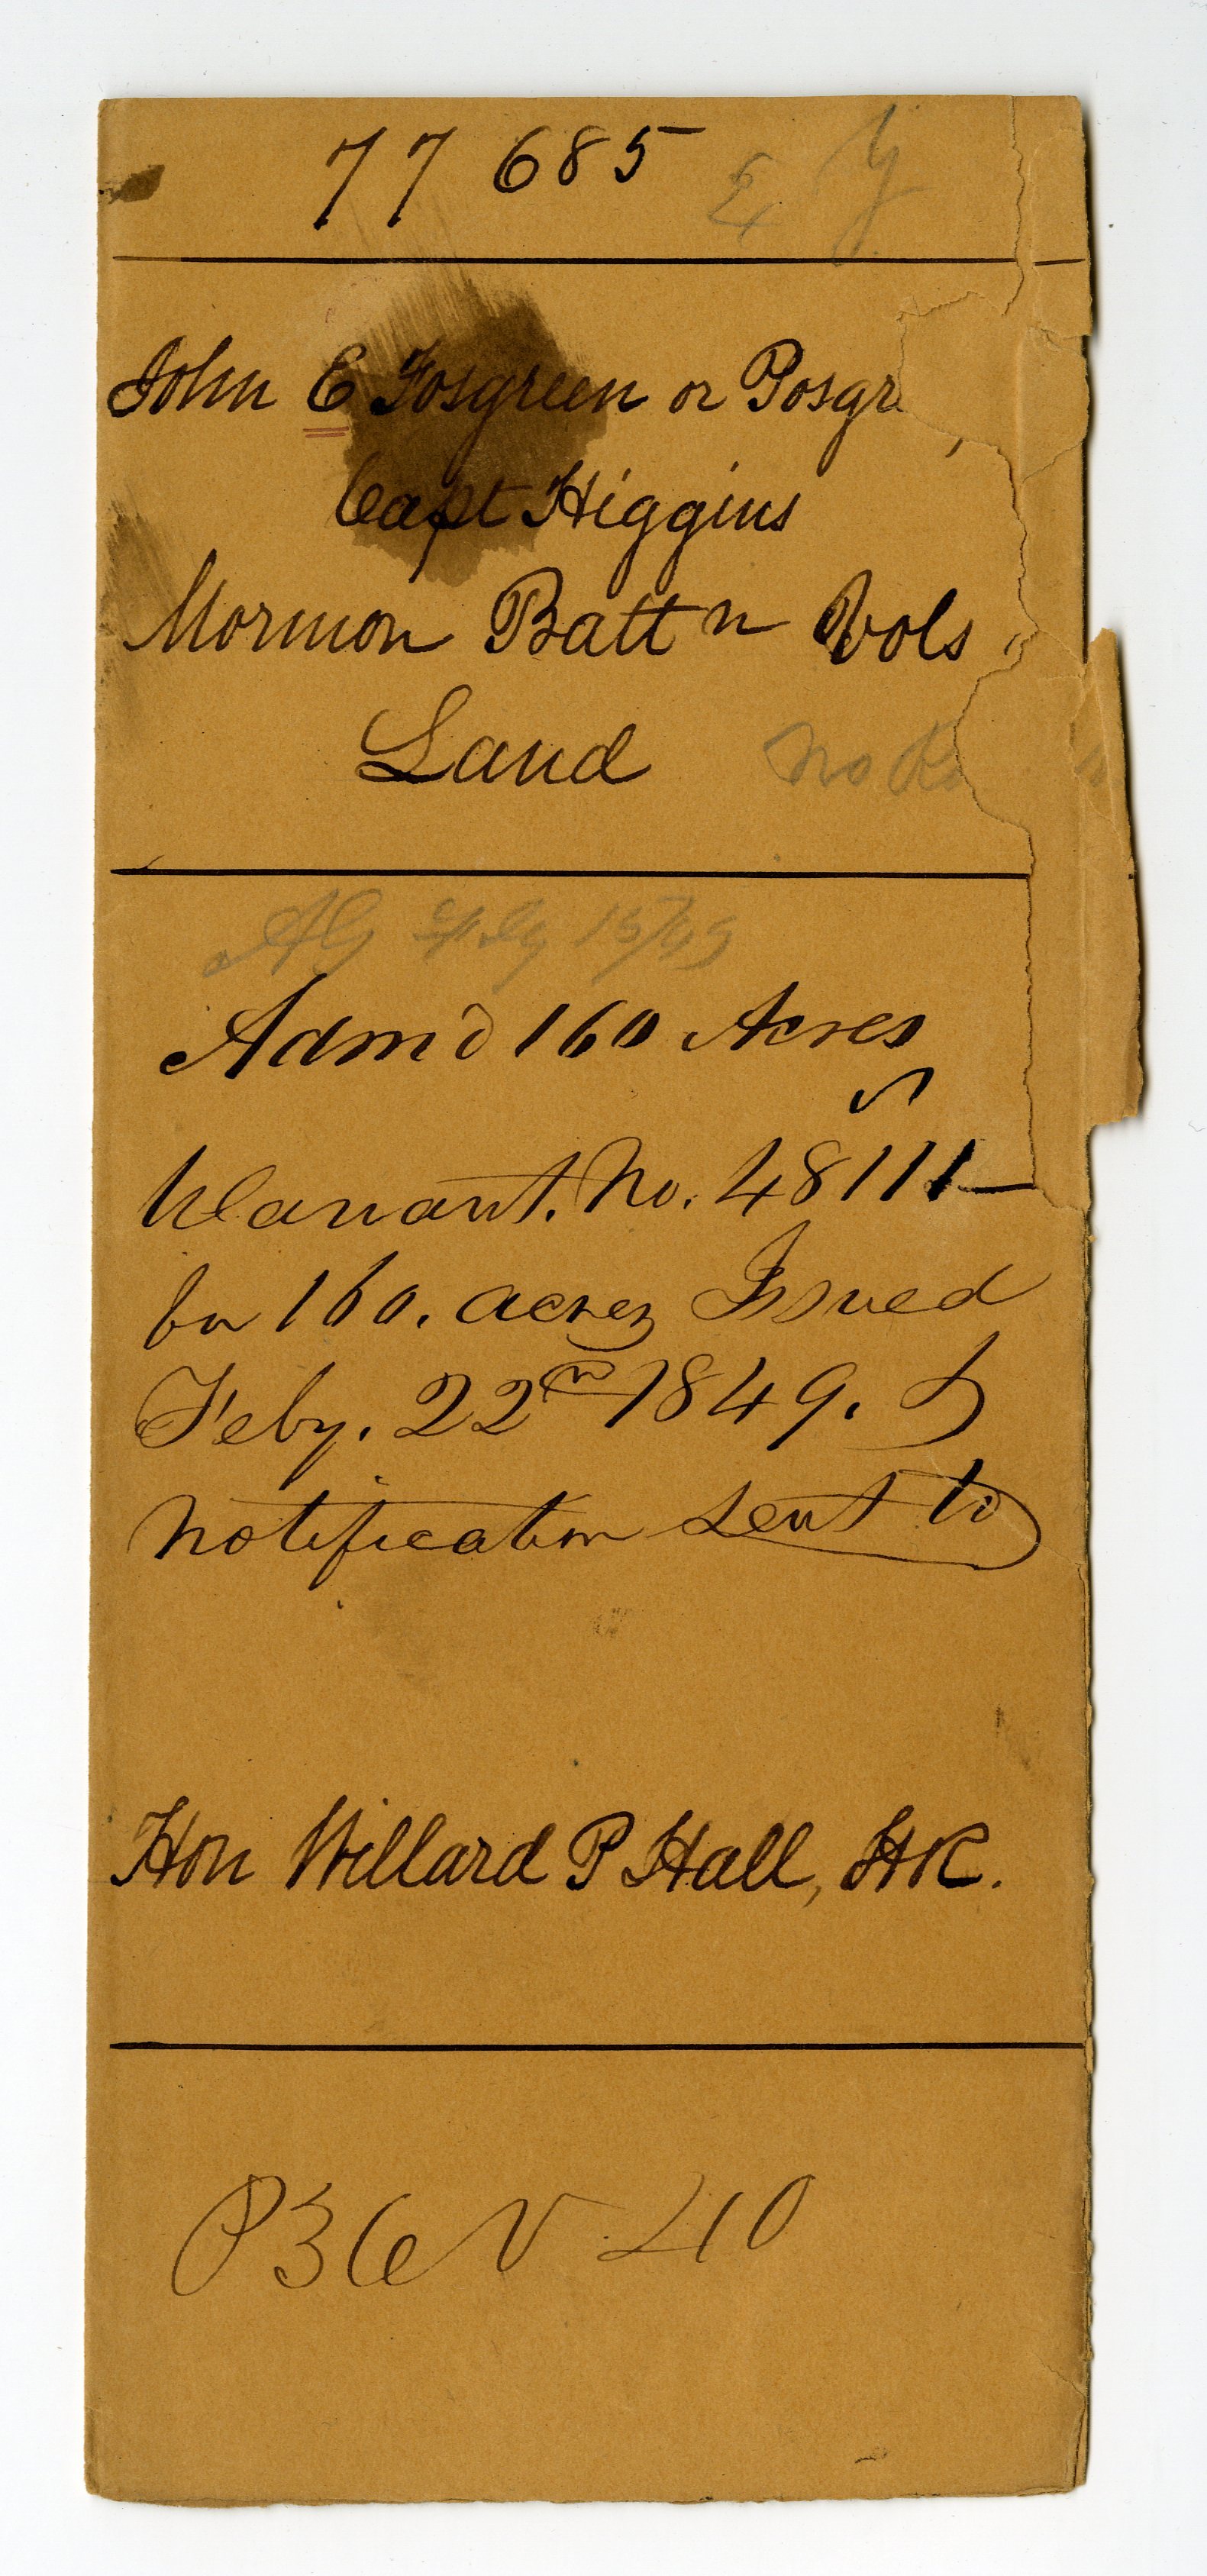 77 685
John E Fosgreen or Posgr
Capt Higgins
Mormon Battn Vols
Land No
AG Feby 15/49
Admd 160 Acres
Warrant. No. 48111
for 160. acres Issued
Feby. 22nd 1849.
Notification sent to
Hon Willard P Hall, HR.
P36 V 410